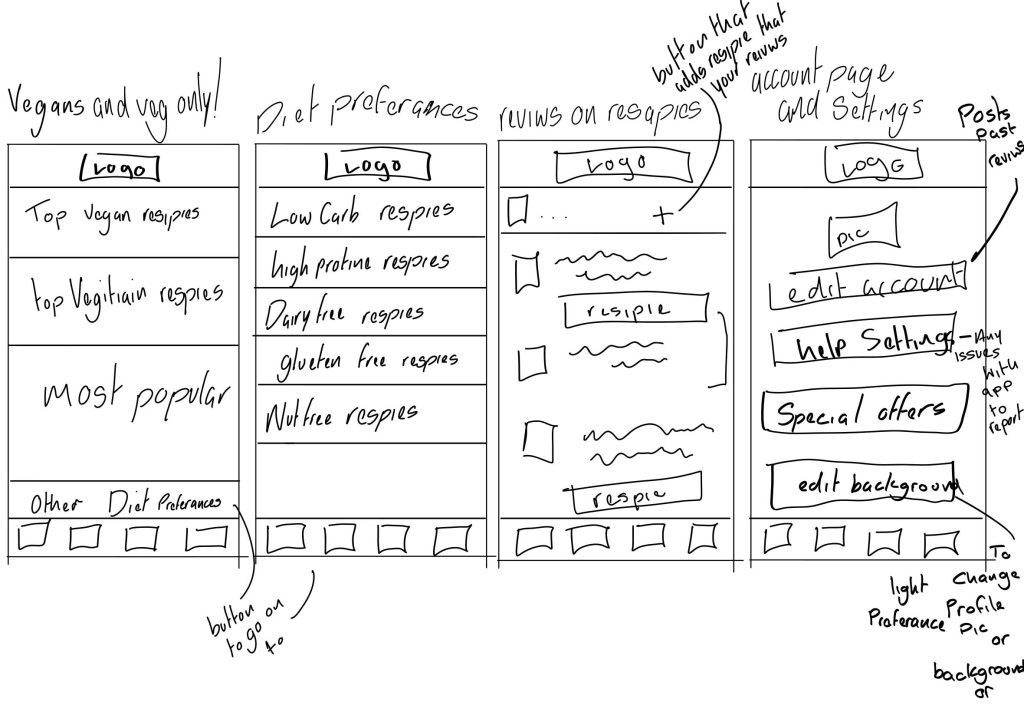 Vegans and veg only!
Logo
Top Vegan resipies
top Vegitiain respies
most popular
Other Diet Preferances
button
to go on
to
Diet preferances
Logo
Low Carb respies
high protine respies
Dairy free respies
glueten free respies
Nut free respies
reviws on resapies
button that
adds resipie that
your reiuws
Logo
...
+
resipie
respie
account page
and Settings
Posts
past
reviws
LOGG
pic
edit account
help Settings
- Any
issues
with
app
to
report
Special offers
edit background
To
change
Profile
pic
or
background
or
light
Preferance